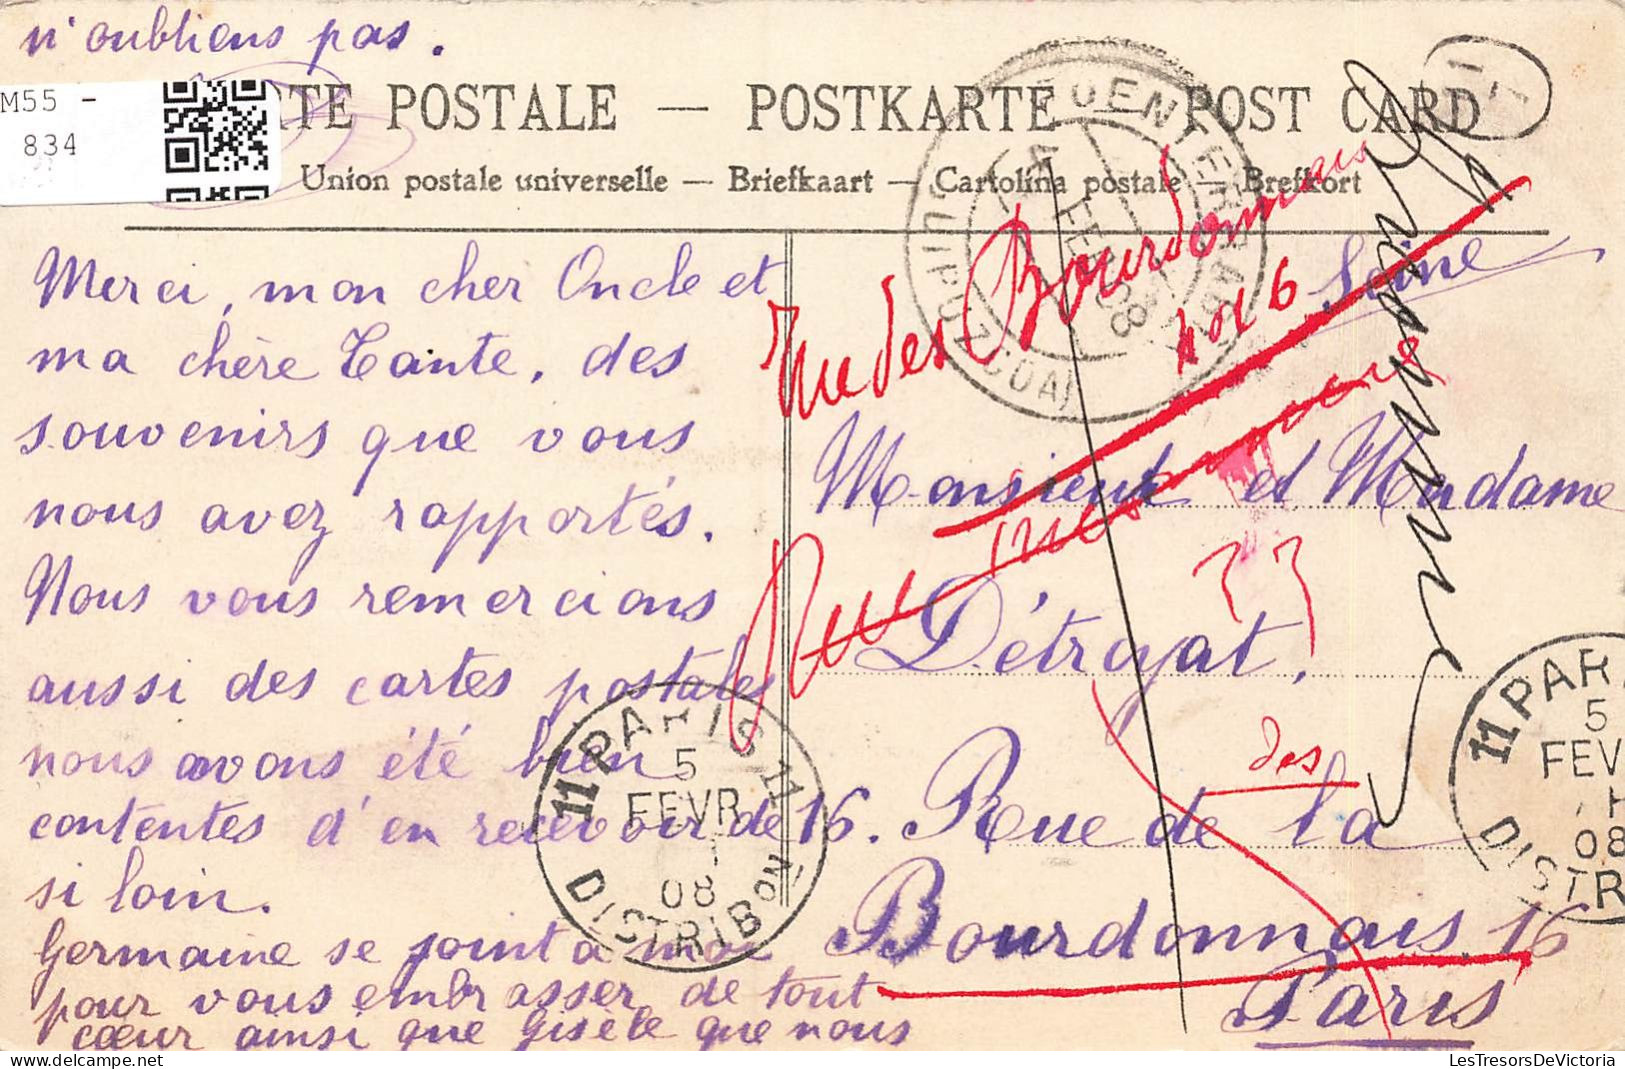 n'oubliens pas.
M55 -
834
RTE POSTALE — POSTKARTE — POST CARD
Union postale universelle — Briefkaart — Cartolina postale — Brefkort
Merci, mon cher Oncle et
ma chère Tante, des
souvenirs que vous
nous avez rapportés.
Nous vous remercions
aussi des cartes postales
nous avons été bien
contentes d'en recevoir de
si loin.
Germaine se joint à moi
pour vous embrasser de tout
cœur ainsi que Gisèle que nous
Rue des Bourdonnais
16
Seine
Monsieur et Madame
Détroyat,
des
16. Rue de la
Bourdonnais 16
Paris
FUENTERRABIA
4 FEB 08
(GUIPUZCOA)
PARIS 11
5
FEVR
08
DISTRIBON
11 PARI
5
FEV
08
DISTR
LesTresorsDeVictoria